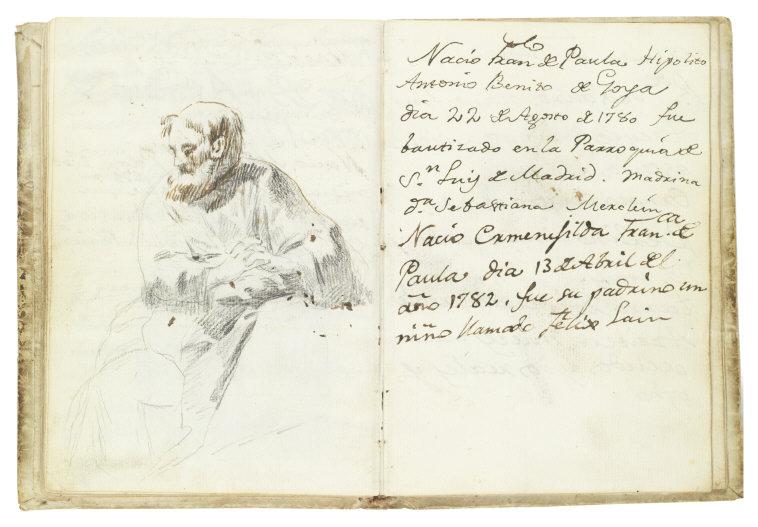 Nacio Fran.co de Paula Hipolito
Antonio Benito de Goya
dia 22 de Agosto de 1780 fue
bautizado en la Parroquia de
S.n Luis de Madrid. Madrina
d.a Sebastiana Merclein
Nacio Ermenegilda Fran.ca de
Paula dia 13 de Abril del
año 1782. fue su padrino un
niño llamado Felix Lain